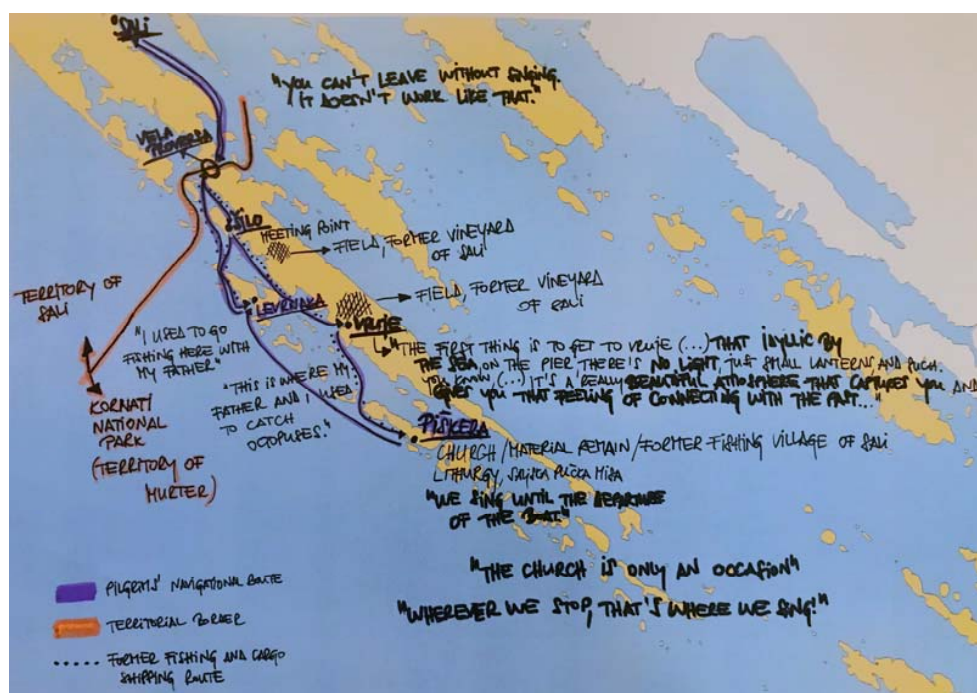 SALI
"YOU CAN'T LEAVE WITHOUT SINGING.
IT DOESN'T WORK LIKE THAT."
VELA
PROVERSA
ŠILO
MEETING POINT
FIELD, FORMER VINEYARD
OF SALI
TERRITORY OF
SALI
LEVRNAKA
FIELD, FORMER VINEYARD
OF SALI
VRUJE
"I USED TO GO
FISHING HERE WITH
MY FATHER"
"THE FIRST THING IS TO GET TO VRUJE (...) THAT IDYLLIC BY
THE SEA, ON THE PIER, THERE IS NO LIGHT, JUST SMALL LANTERNS AND SUCH.
YOU KNOW, (...) IT'S A REALLY BEAUTIFUL ATMOSPHERE THAT CAPTURES YOU AND
GIVES YOU THAT FEELING OF CONNECTING WITH THE PAST..."
"THIS IS WHERE MY
FATHER AND I USED
TO CATCH
OCTOPUSES."
KORNATI
NATIONAL
PARK
(TERRITORY OF
MURTER)
PIŠKERA
CHURCH/MATERIAL REMAIN/FORMER FISHING VILLAGE OF SALI
LITHURGY, SALJSKA PUČKA MISA
"WE SING UNTIL THE DEPARTURE
OF THE BOAT."
"THE CHURCH IS ONLY AN OCCASION"
"WHEREVER WE STOP, THAT'S WHERE WE SING!"
PILGRIMS' NAVIGATIONAL ROUTE
TERRITORIAL BORDER
FORMER FISHING AND CARGO
SHIPPING ROUTE